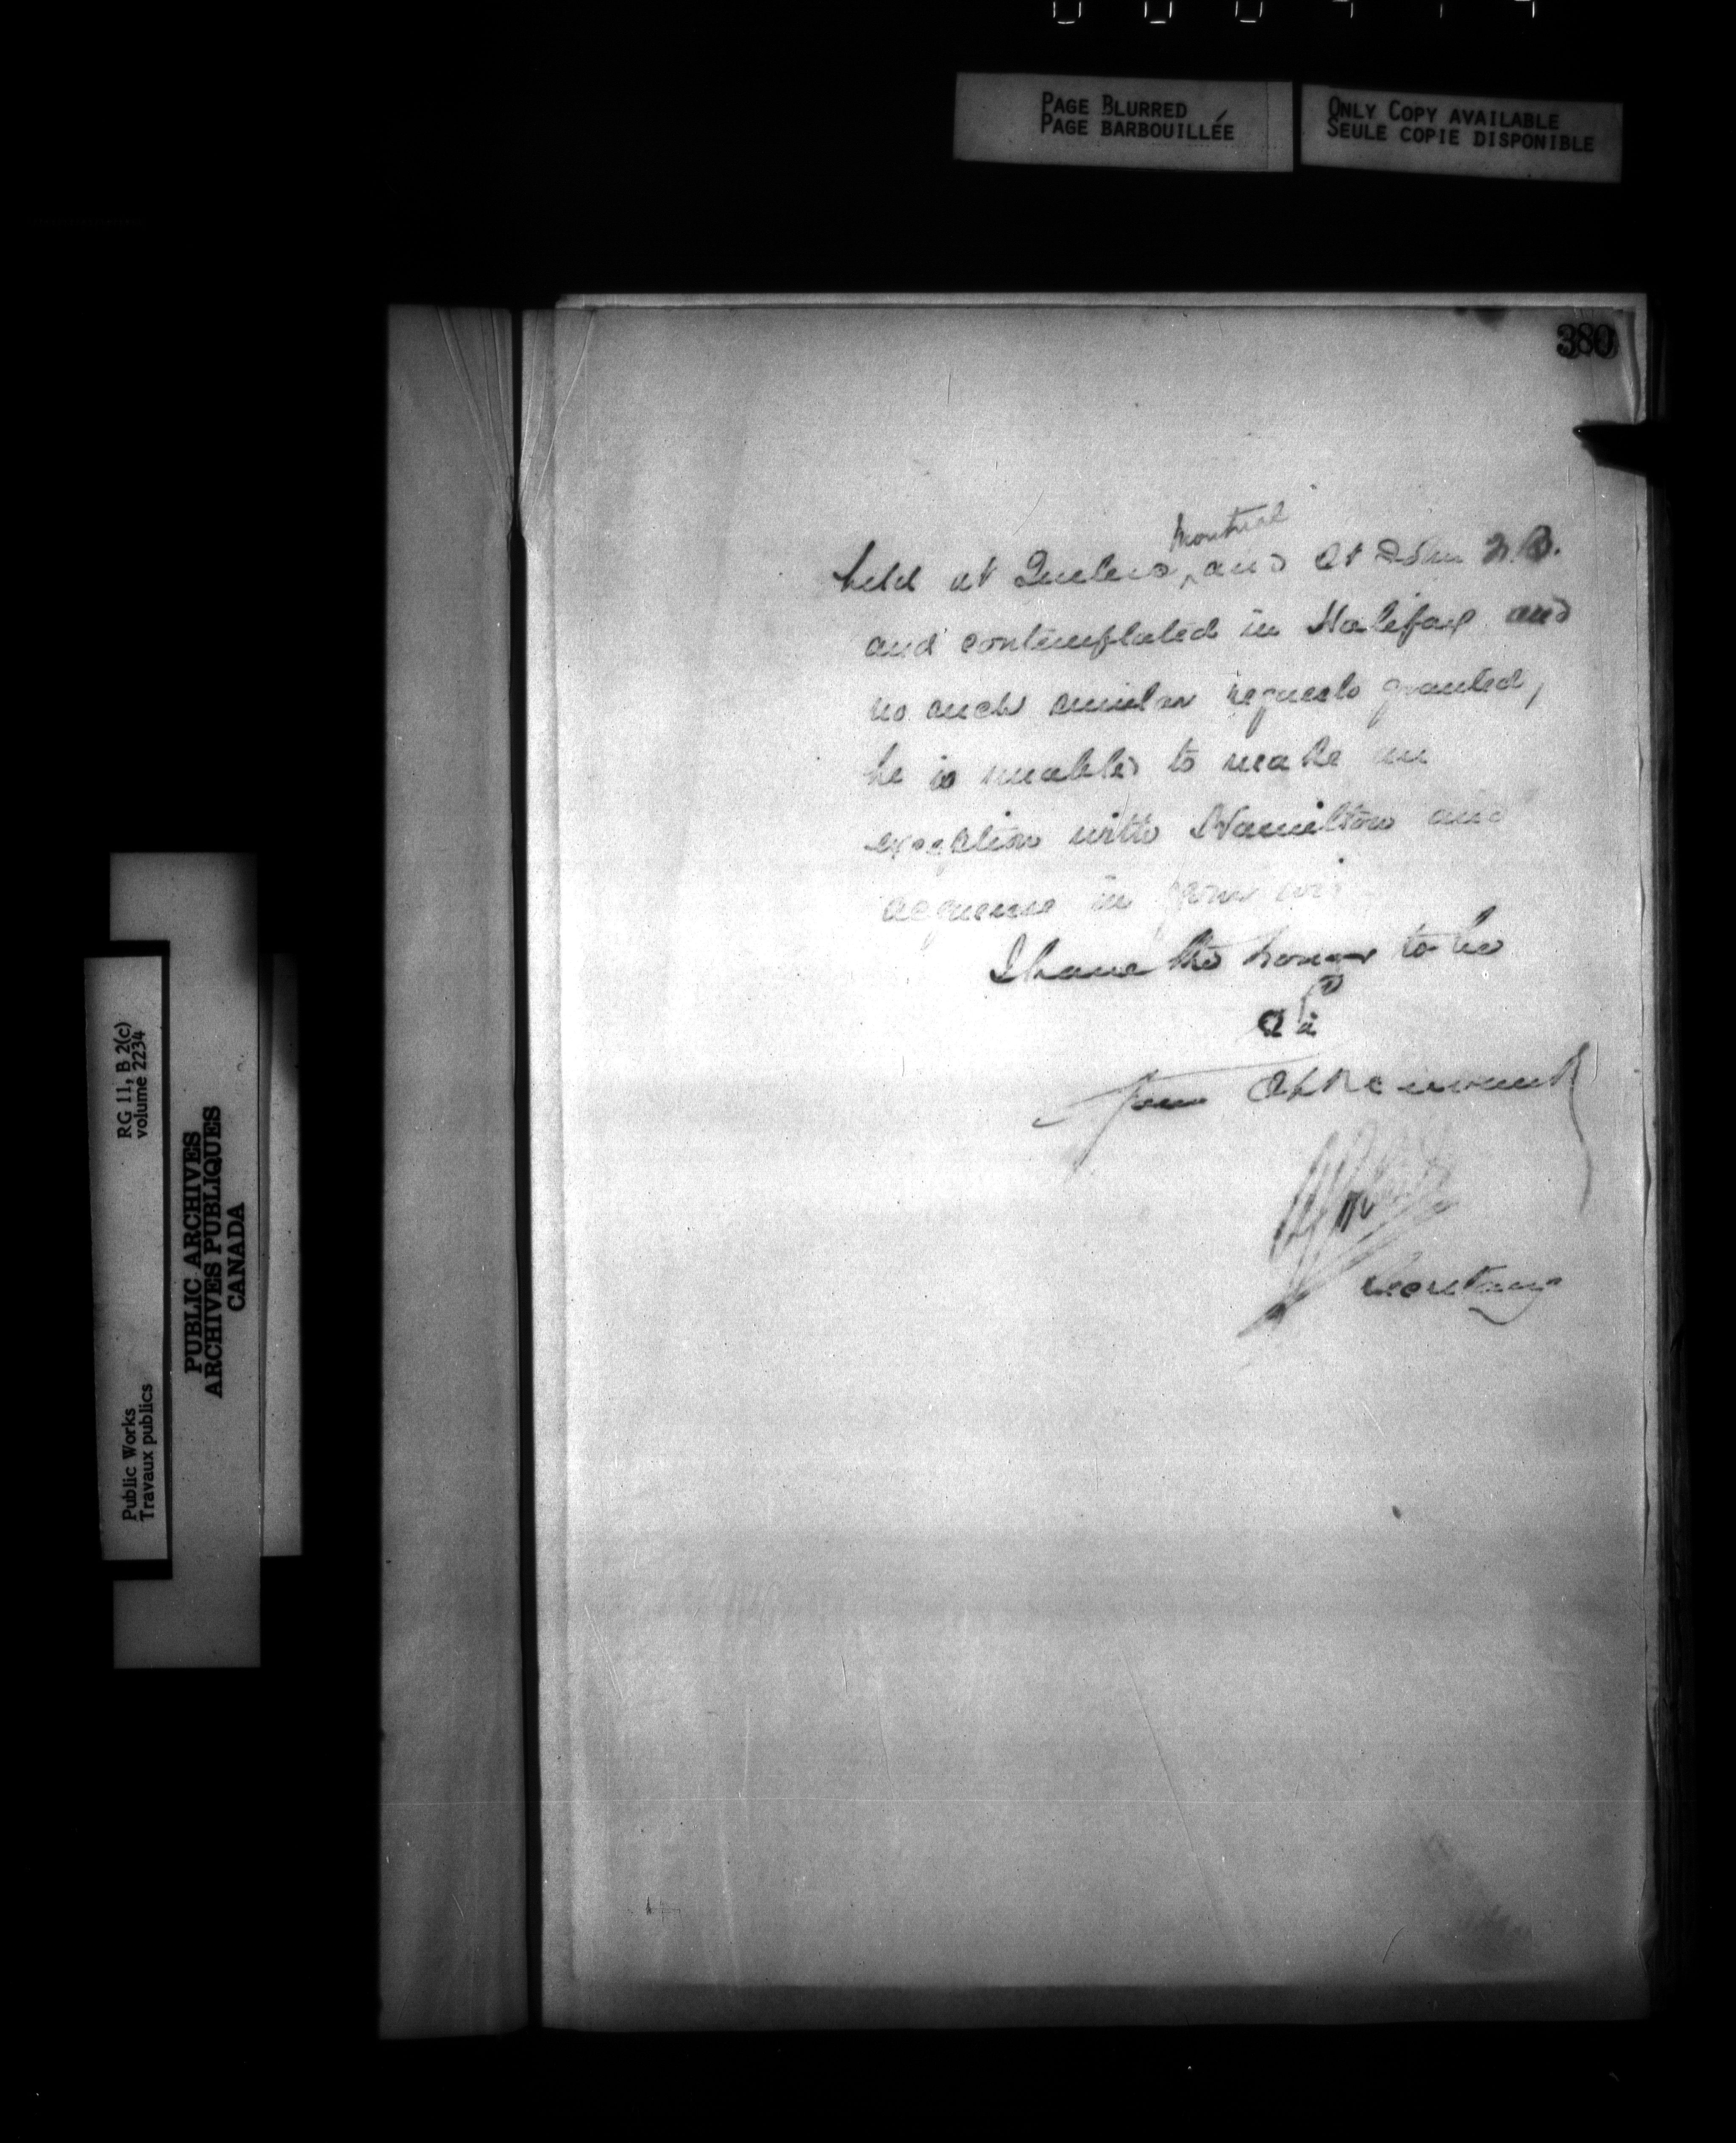 PAGE BLURRED
PAGE BARBOUILLÉE
ONLY COPY AVAILABLE
SEULE COPIE DISPONIBLE
380
Montreal
held at Quebec, and St John N.B.
and contemplated in Halifax and
no such similar requests granted,
he is unable to make an
exception with Hamilton and
acquiesce in your
I have the honor to be
Sir
Your Obt Servant
Secretary
RG 11, B 2(c)
volume 2234
Public Works
Travaux publics
PUBLIC ARCHIVES
ARCHIVES PUBLIQUES
CANADA